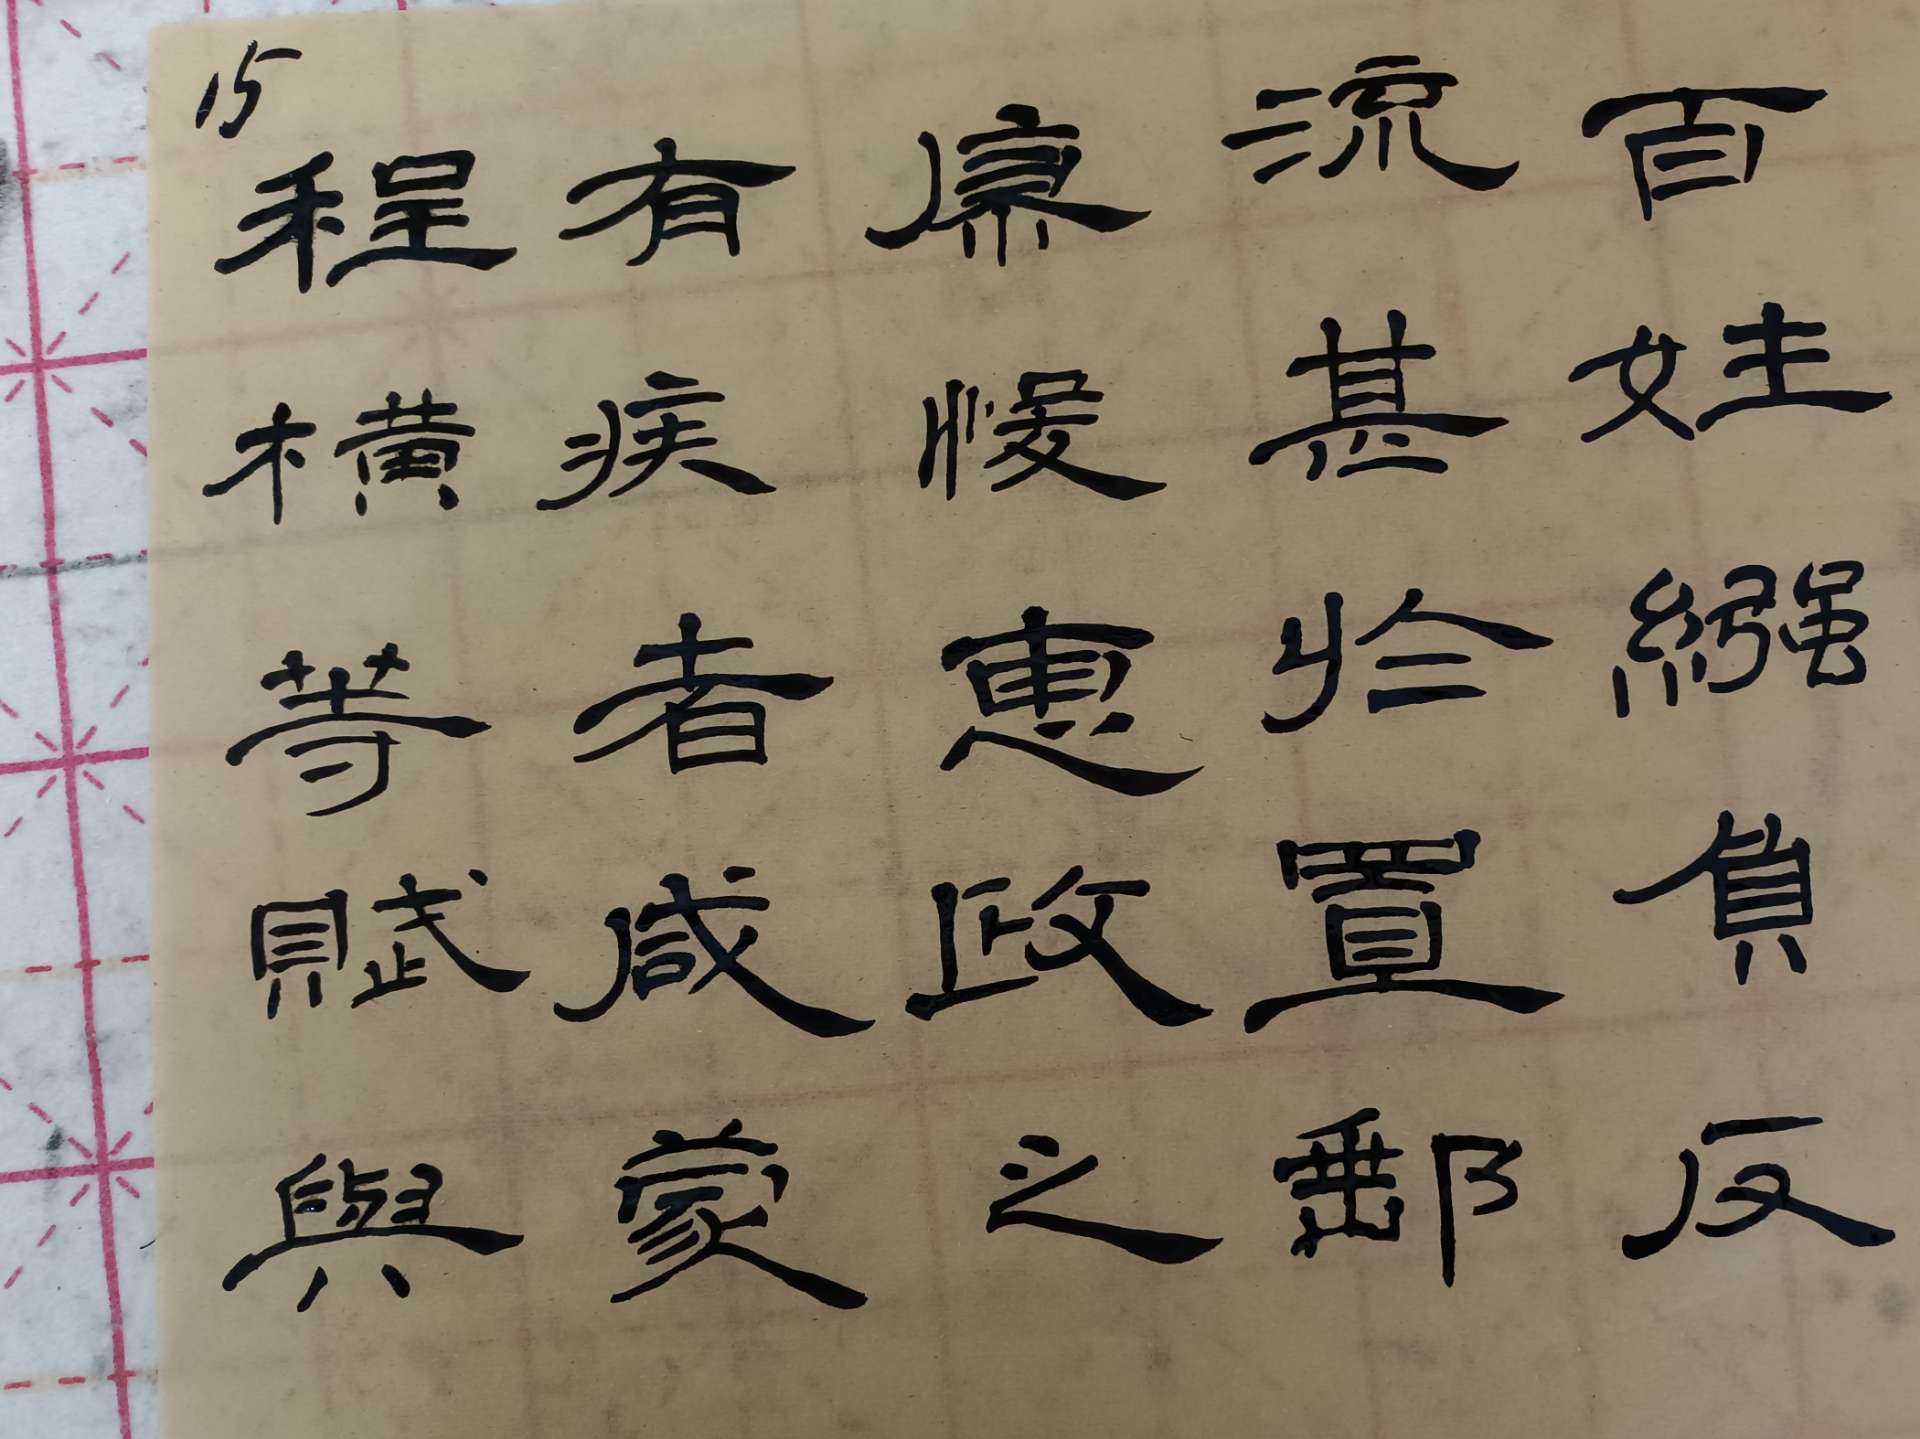 15
程橫等賦與
有疾者咸蒙
瘳悛惠政之
流甚於置郵
百姓繦負反